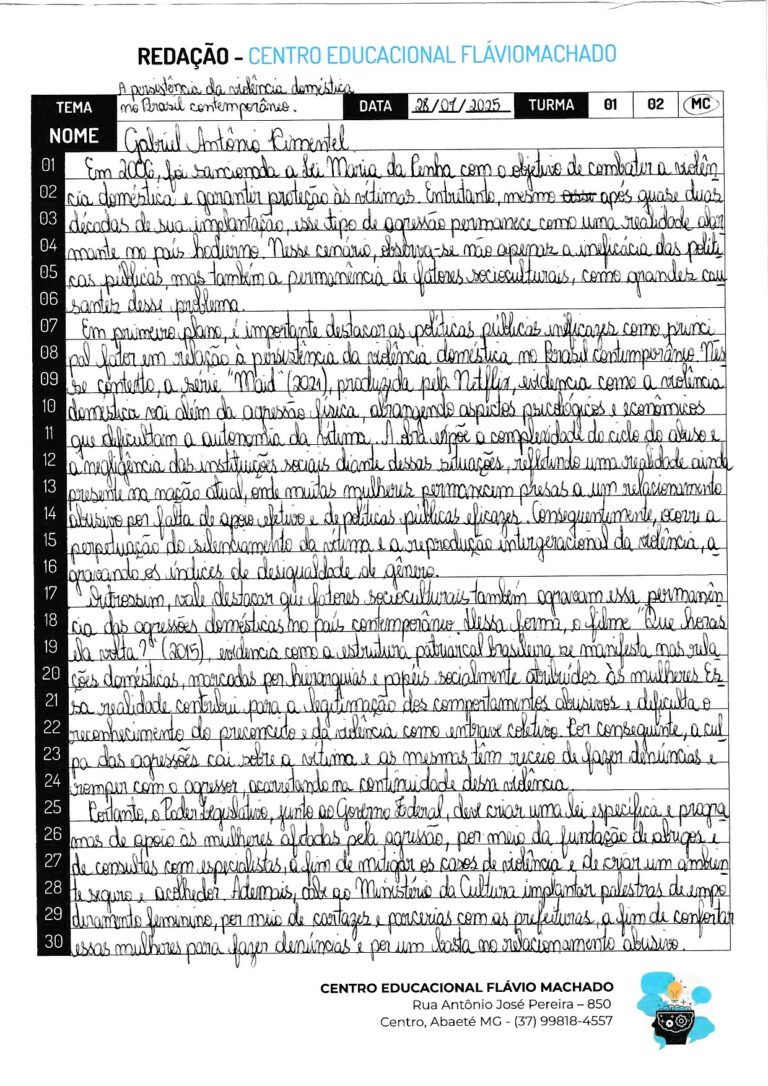 REDAÇÃO – CENTRO EDUCACIONAL FLÁVIOMACHADO
A persistência da violência doméstica
TEMA no Brasil contemporâneo. DATA 28/07/2025 TURMA 01 02 MC
NOME Gabriel Antônio Pimentel
01 Em 2006, foi sancionada a Lei Maria da Penha com o objetivo de combater a violên
02 cia doméstica e garantir proteção às vítimas. Entretanto, mesmo após quase duas
03 décadas de sua implantação, esse tipo de agressão permanece como uma realidade alar
04 mante no país hodierno. Nesse cenário, observa-se não apenas a ineficácia das políti
05 cas públicas, mas também a permanência de fatores socioculturais, como grandes cau
06 santes desse problema.
07 Em primeiro plano, é importante destacar as políticas públicas ineficazes como princi
08 pal fator em relação à persistência da violência doméstica no Brasil contemporâneo. Nes
09 se contexto, a série "Maid" (2021), produzida pela Netflix, evidencia como a violência
10 doméstica vai além da agressão física, abrangendo aspectos psicológicos e econômicos
11 que dificultam a autonomia da vítima. A obra expõe a complexidade do ciclo do abuso e
12 a negligência das instituições sociais diante dessas situações, refletindo uma realidade ainda
13 presente na nação atual, onde muitas mulheres permanecem presas a um relacionamento
14 abusivo por falta de apoio efetivo e de políticas públicas eficazes. Consequentemente, ocorre a
15 perpetuação do silenciamento da vítima e a reprodução intergeracional da violência, a
16 gravando os índices de desigualdade de gênero.
17 Outrossim, vale destacar que fatores socioculturais também agravam essa permanên
18 cia das agressões domésticas no país contemporâneo. Dessa forma, o filme "Que horas
19 ela volta?" (2015), evidencia como a estrutura patriarcal brasileira se manifesta nas rela
20 ções domésticas, marcadas por hierarquias e papéis socialmente atribuídos às mulheres. Es
21 sa realidade contribui para a legitimação dos comportamentos abusivos e dificulta o
22 reconhecimento do preconceito e da violência como entrave coletivo. Por conseguinte, a cul
23 pa das agressões cai sobre a vítima e as mesmas têm receio de fazer denúncias e
24 romper com o agressor, acarretando na continuidade dessa violência.
25 Portanto, o Poder Legislativo, junto ao Governo Federal, deve criar uma lei específica e progra
26 mas de apoio às mulheres afetadas pela agressão, por meio da fundação de abrigos e
27 de consultas com especialistas, a fim de mitigar os casos de violência e de criar um ambien
28 te seguro e acolhedor. Ademais, cabe ao Ministério da Cultura implantar palestras de empo
29 deramento feminino, por meio de cartazes e parcerias com as prefeituras, a fim de confortar
30 essas mulheres para fazer denúncias e por um basta no relacionamento abusivo.
CENTRO EDUCACIONAL FLÁVIO MACHADO
Rua Antônio José Pereira – 850
Centro, Abaeté MG - (37) 99818-4557